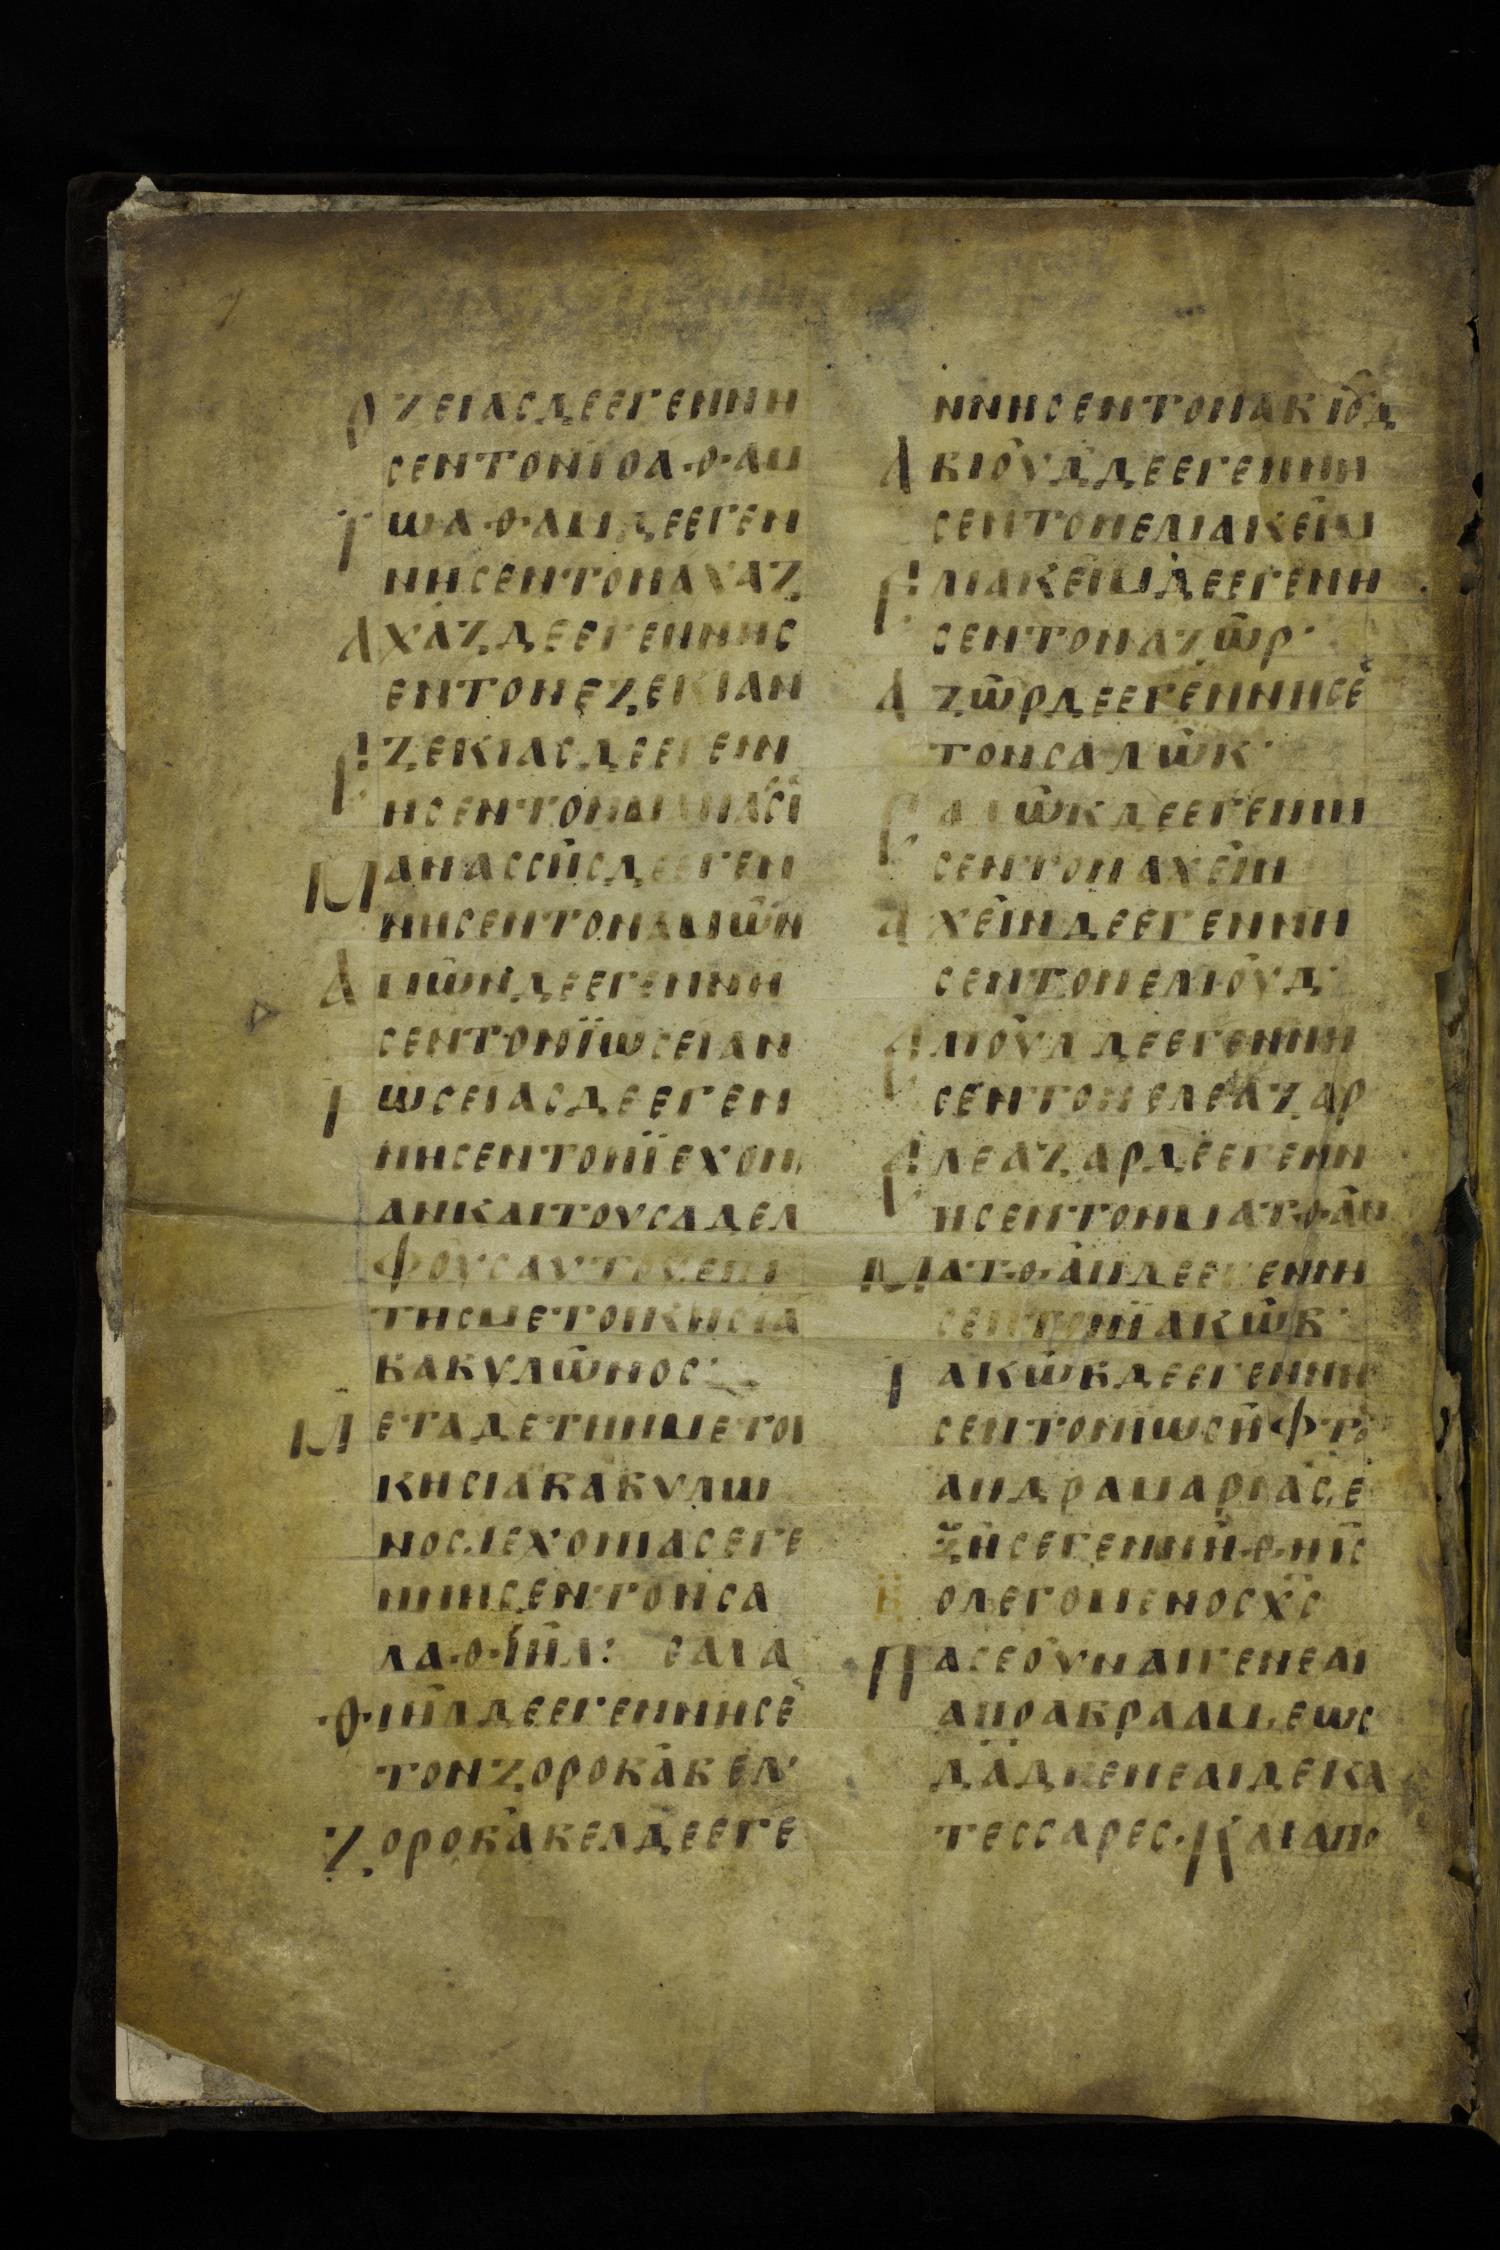 ΟΖΕΙΑΣΔΕΕΓΕΝΝΗ
ΣΕΝΤΟΝΪΟΑ·Θ·ΑΜ
ΪΩΑ·Θ·ΑΜΔΕΕΓΕΝ
ΝΗΣΕΝΤΟΝΑΧΑΖ
ΑΧΑΖΔΕΕΓΕΝΝΗΣ
ΕΝΤΟΝΕΖΕΚΙΑΝ
ΕΖΕΚΙΑΣΔΕΕΓΕΝΝ
ΗΣΕΝΤΟΝΜΑΝΑΣΣΗ
ΜΑΝΑΣΣΗΣΔΕΕΓΕΝ
ΝΗΣΕΝΤΟΝΑΜΩΝ
ΑΜΩΝΔΕΕΓΕΝΝΗ
ΣΕΝΤΟΝΪΩΣΕΙΑΝ
ΙΩΣΕΙΑΣΔΕΕΓΕΝ
ΝΗΣΕΝΤΟΝΪΕΧΟΝΙ
ΑΝΚΑΙΤΟΥΣΑΔΕΛ
ΦΟΥΣΑΥΤΟΥΕΠΙ
ΤΗΣΜΕΤΟΙΚΗΣΙΑ
ΒΑΒΥΛΩΝΟΣ·
ΜΕΤΑΔΕΤΗΝΜΕΤΟΙ
ΚΗΣΙΑΒΑΒΥΛΩ
ΝΟΣ.ΙΕΧΟΝΙΑΣΕΓΕ
ΝΝΗΣΕΝΤΟΝΣΑ
ΛΑ·Θ·ΙΗΛ: ΣΑΛΑ
·Θ·ΙΗΛΔΕΕΓΕΝΝΗΣΕ
ΤΟΝΖΟΡΟΒΑΒΕΛ·
ΖΟΡΟΒΑΒΕΛΔΕΕΓΕ
ΝΝΗΣΕΝΤΟΝΑΒΙΟΥΔ
ΑΒΙΟΥΔΔΕΕΓΕΝΝΗ
ΣΕΝΤΟΝΕΛΙΑΚΕΙΜ
ΕΛΙΑΚΕΙΜΔΕΕΓΕΝΝΗ
ΣΕΝΤΟΝΑΖΩΡ·
ΑΖΩΡΔΕΕΓΕΝΝΗΣΕ
ΤΟΝΣΑΔΩΚ·
ΣΑΔΩΚΔΕΕΓΕΝΝΗ
ΣΕΝΤΟΝΑΧΕΙΝ
ΑΧΕΙΝΔΕΕΓΕΝΝΗ
ΣΕΝΤΟΝΕΛΙΟΥΔ·
ΕΛΙΟΥΔΔΕΕΓΕΝΝΗ
ΣΕΝΤΟΝΕΛΕΑΖΑΡ
ΕΛΕΑΖΑΡΔΕΕΓΕΝΝ
ΗΣΕΝΤΟΝΜΑΤ·Θ·ΑΝ
ΜΑΤ·Θ·ΑΝΔΕΕΓΕΝΝΗ
ΣΕΝΤΟΝΪΑΚΩΒ·
ΙΑΚΩΒΔΕΕΓΕΝΝΗ
ΣΕΝΤΟΝΙΩΣΗΦΤΟ
ΑΝΔΡΑΜΑΡΙΑΣ,Ε
ΞΗΣΕΓΕΝΝΗ·Θ·ΗΙΣ
ΟΛΕΓΟΜΕΝΟΣΧΣ
ΠΑΣΕΟΥΝΑΙΓΕΝΕΑΙ
ΑΠΟΑΒΡΑΑΜ.ΕΩΣ
ΔΑΔΓΕΝΕΑΙΔΕΚΑ
ΤΕΣΣΑΡΕΣ·ΚΑΙΑΠΟ